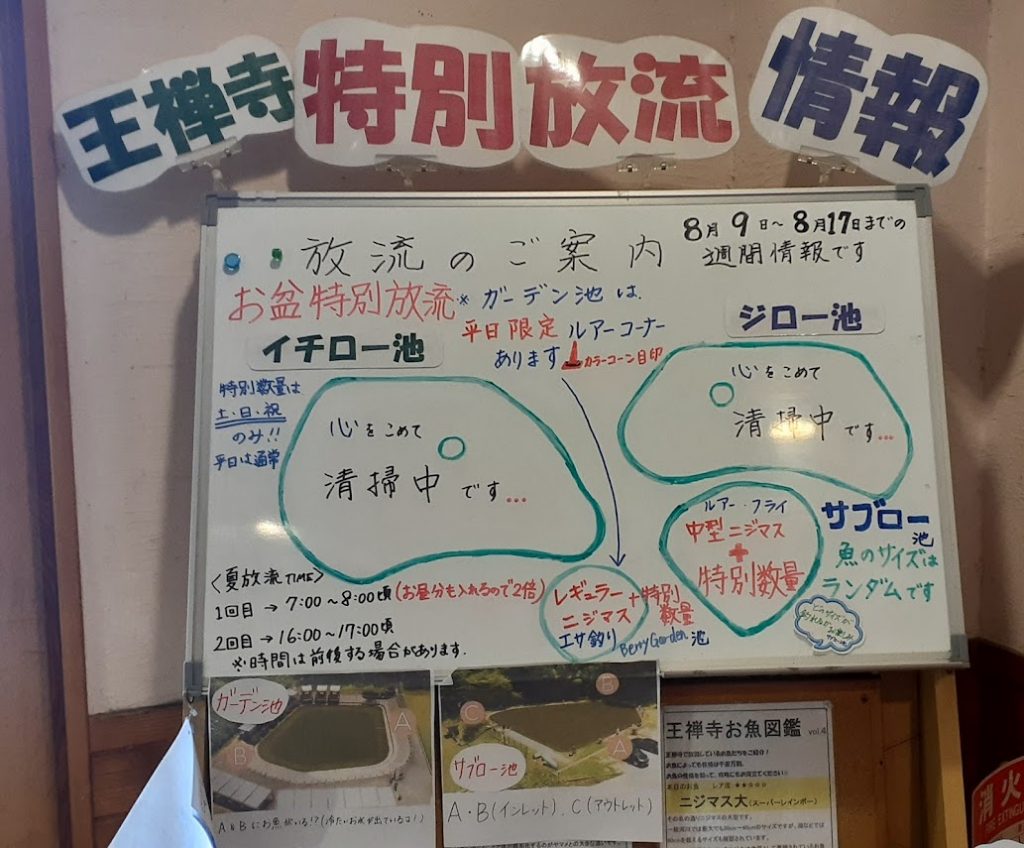 王禅寺 特別 放流 情報
放流のご案内
8月9日〜8月17日までの
週間情報です
お盆特別放流
※ガーデン池は、
平日限定 ルアーコーナー
あります カラーコーン目印
イチロー池
ジロー池
特別数量は
土・日・祝
のみ!!
平日は通常
心をこめて
清掃中です...
心をこめて
清掃中です...
ルアー・フライ
中型ニジマス
+
特別数量
サブロー
池
魚のサイズは
ランダムです
<夏放流TIME>
1回目→7:00〜8:00頃(お昼分も入れるので2倍)
2回目→16:00〜17:00頃
※時間は前後する場合があります.
レギュラー+特別
ニジマス 数量
エサ釣り Berry Garden 池
ガーデン池
A
B
A&Bにお魚がいる!?(冷たいお水が出ているよ!)
B
C
A
サブロー池
A・B(インレット)、C(アウトレット)
王禅寺お魚図鑑 vol.4
王禅寺で放流しているお魚たちをご紹介!
本日のお魚 レア度 ★★☆☆☆
ニジマス大(スーパーレインボー)
消火